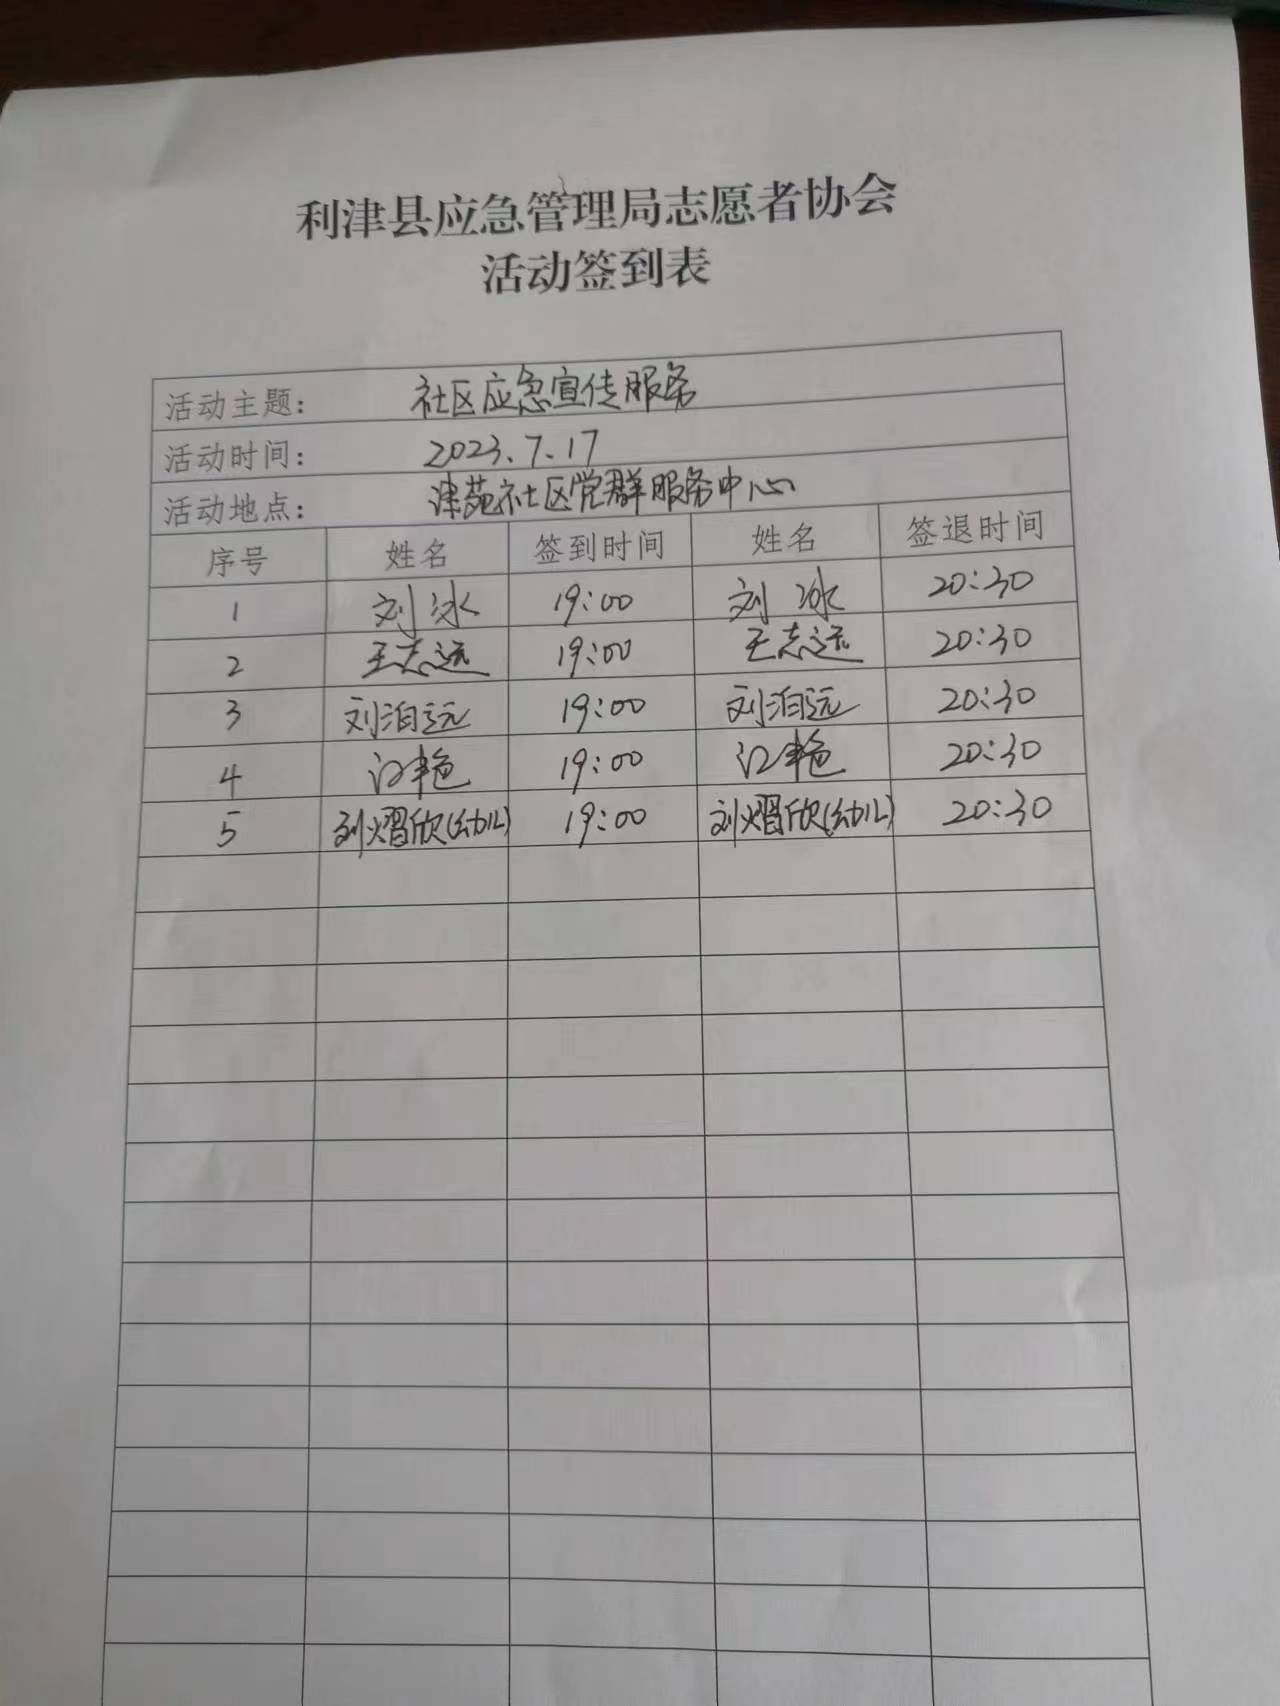 利津县应急管理局志愿者协会
活动签到表
活动主题： 社区应急宣传服务
活动时间： 2023.7.17
活动地点： 津苑社区党群服务中心
序号 姓名 签到时间 姓名 签退时间
1 刘冰 19:00 刘冰 20:30
2 王志远 19:00 王志远 20:30
3 刘泊远 19:00 刘泊远 20:30
4 19:00 20:30
5 刘熠欣(幼儿) 19:00 刘熠欣(幼儿) 20:30